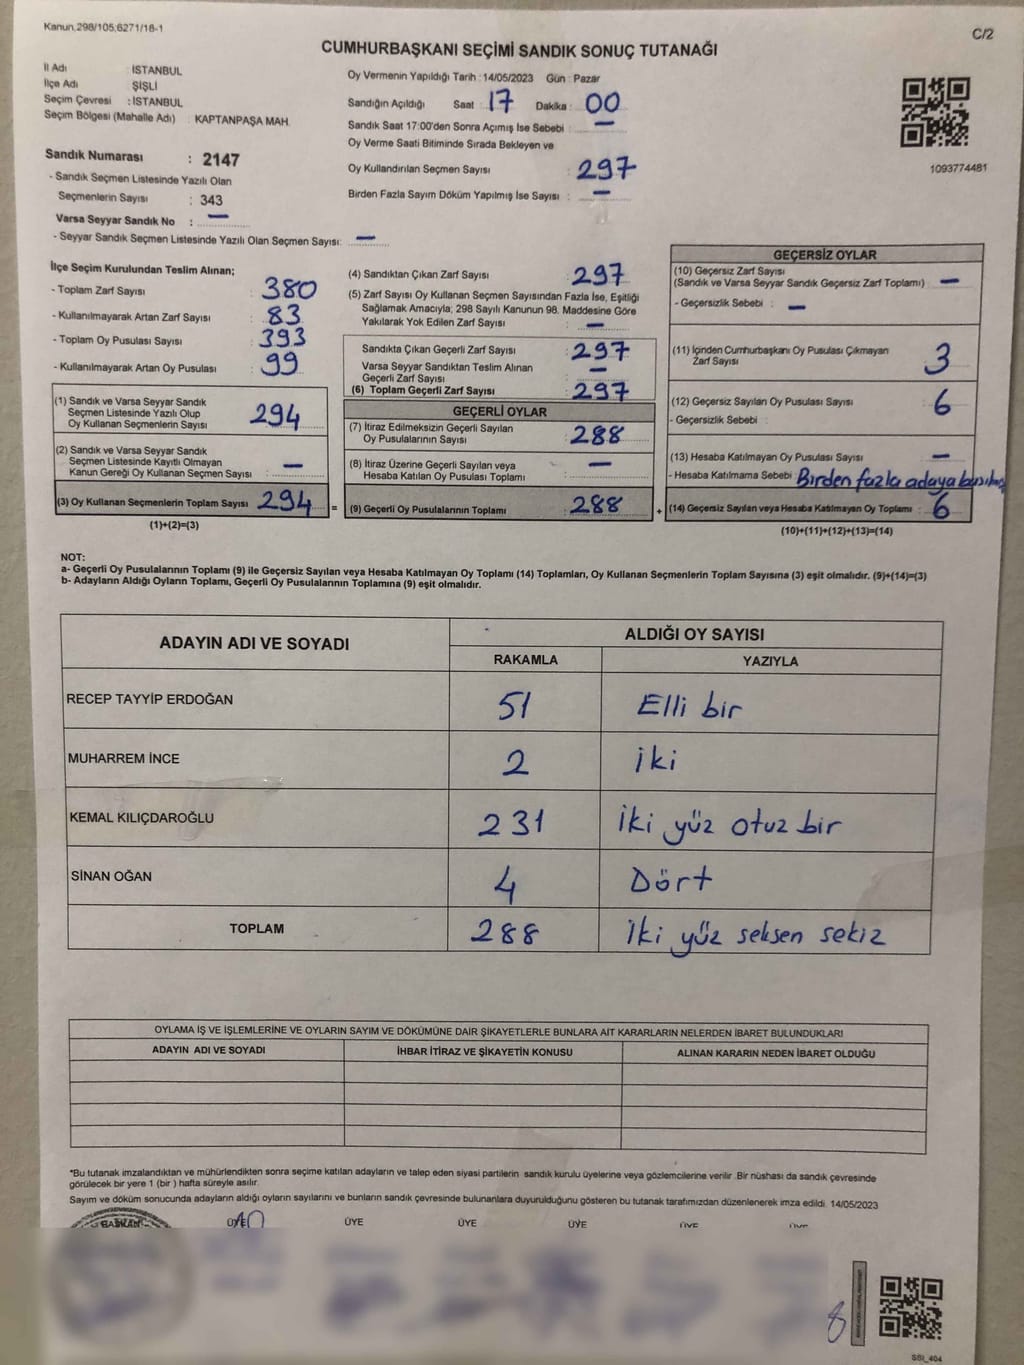 Kanun.298/105;6271/18-1
C/2
CUMHURBAŞKANI SEÇİMİ SANDIK SONUÇ TUTANAĞI
İl Adı : İSTANBUL
İlçe Adı : ŞİŞLİ
Seçim Çevresi : İSTANBUL
Seçim Bölgesi (Mahalle Adı) : KAPTANPAŞA MAH.
Sandık Numarası : 2147
- Sandık Seçmen Listesinde Yazılı Olan
Seçmenlerin Sayısı : 343
Varsa Seyyar Sandık No : —
- Seyyar Sandık Seçmen Listesinde Yazılı Olan Seçmen Sayısı: —
Oy Vermenin Yapıldığı Tarih : 14/05/2023 Gün : Pazar
Sandığın Açıldığı Saat : 17 Dakika : 00
Sandık Saat 17:00'den Sonra Açımış İse Sebebi : —
Oy Verme Saati Bitiminde Sırada Bekleyen ve
Oy Kullandırılan Seçmen Sayısı : 297
Birden Fazla Sayım Döküm Yapılmış İse Sayısı : —
1093774481
İlçe Seçim Kurulundan Teslim Alınan;
- Toplam Zarf Sayısı : 380
- Kullanılmayarak Artan Zarf Sayısı : 83
- Toplam Oy Pusulası Sayısı : 393
- Kullanılmayarak Artan Oy Pusulası : 99
(1) Sandık ve Varsa Seyyar Sandık
Seçmen Listesinde Yazılı Olup
Oy Kullanan Seçmenlerin Sayısı : 294
(2) Sandık ve Varsa Seyyar Sandık
Seçmen Listesinde Kayıtlı Olmayan
Kanun Gereği Oy Kullanan Seçmen Sayısı : —
(3) Oy Kullanan Seçmenlerin Toplam Sayısı : 294
(1)+(2)=(3)
(4) Sandıktan Çıkan Zarf Sayısı : 297
(5) Zarf Sayısı Oy Kullanan Seçmen Sayısından Fazla İse, Eşitliği
Sağlamak Amacıyla; 298 Sayılı Kanunun 98. Maddesine Göre
Yakılarak Yok Edilen Zarf Sayısı : —
Sandıkta Çıkan Geçerli Zarf Sayısı : 297
Varsa Seyyar Sandıktan Teslim Alınan
Geçerli Zarf Sayısı : —
(6) Toplam Geçerli Zarf Sayısı : 297
GEÇERLİ OYLAR
(7) İtiraz Edilmeksizin Geçerli Sayılan
Oy Pusulalarının Sayısı : 288
(8) İtiraz Üzerine Geçerli Sayılan veya
Hesaba Katılan Oy Pusulaları Toplamı : —
= (9) Geçerli Oy Pusulalarının Toplamı : 288
GEÇERSİZ OYLAR
(10) Geçersiz Zarf Sayısı
(Sandık ve Varsa Seyyar Sandık Geçersiz Zarf Toplamı) : —
- Geçersizlik Sebebi : —
(11) İçinden Cumhurbaşkanı Oy Pusulası Çıkmayan
Zarf Sayısı : 3
(12) Geçersiz Sayılan Oy Pusulası Sayısı : 6
- Geçersizlik Sebebi :
(13) Hesaba Katılmayan Oy Pusulası Sayısı : —
- Hesaba Katılmama Sebebi : Birden fazla adaya
+ (14) Geçersiz Sayılan veya Hesaba Katılmayan Oy Toplamı : 6
(10)+(11)+(12)+(13)=(14)
NOT:
a- Geçerli Oy Pusulalarının Toplamı (9) ile Geçersiz Sayılan veya Hesaba Katılmayan Oy Toplamı (14) Toplamları, Oy Kullanan Seçmenlerin Toplam Sayısına (3) eşit olmalıdır. (9)+(14)=(3)
b- Adayların Aldığı Oyların Toplamı, Geçerli Oy Pusulalarının Toplamına (9) eşit olmalıdır.
ADAYIN ADI VE SOYADI ALDIĞI OY SAYISI
RAKAMLA YAZIYLA
RECEP TAYYİP ERDOĞAN 51 Elli bir
MUHARREM İNCE 2 İki
KEMAL KILIÇDAROĞLU 231 İki yüz otuz bir
SİNAN OĞAN 4 Dört
TOPLAM 288 İki yüz seksen sekiz
OYLAMA İŞ VE İŞLEMLERİNE VE OYLARIN SAYIM VE DÖKÜMÜNE DAİR ŞİKAYETLERLE BUNLARA AİT KARARLARIN NELERDEN İBARET BULUNDUKLARI
ADAYIN ADI VE SOYADI İHBAR İTİRAZ VE ŞİKAYETİN KONUSU ALINAN KARARIN NEDEN İBARET OLDUĞU
*Bu tutanak imzalandıktan ve mühürlendikten sonra seçime katılan adayların ve talep eden siyasi partilerin sandık kurulu üyelerine veya gözlemcilerine verilir .Bir nüshası da sandık çevresinde
görülecek bir yere 1 (bir ) hafta süreyle asılır.
Sayım ve döküm sonucunda adayların aldığı oyların sayılarını ve bunların sandık çevresinde bulunanlara duyurulduğunu gösteren bu tutanak tarafımızdan düzenlenerek imza edildi. 14/05/2023
BAŞKAN ÜYE ÜYE ÜYE ÜYE ÜYE ÜYE
8
SBİ_404